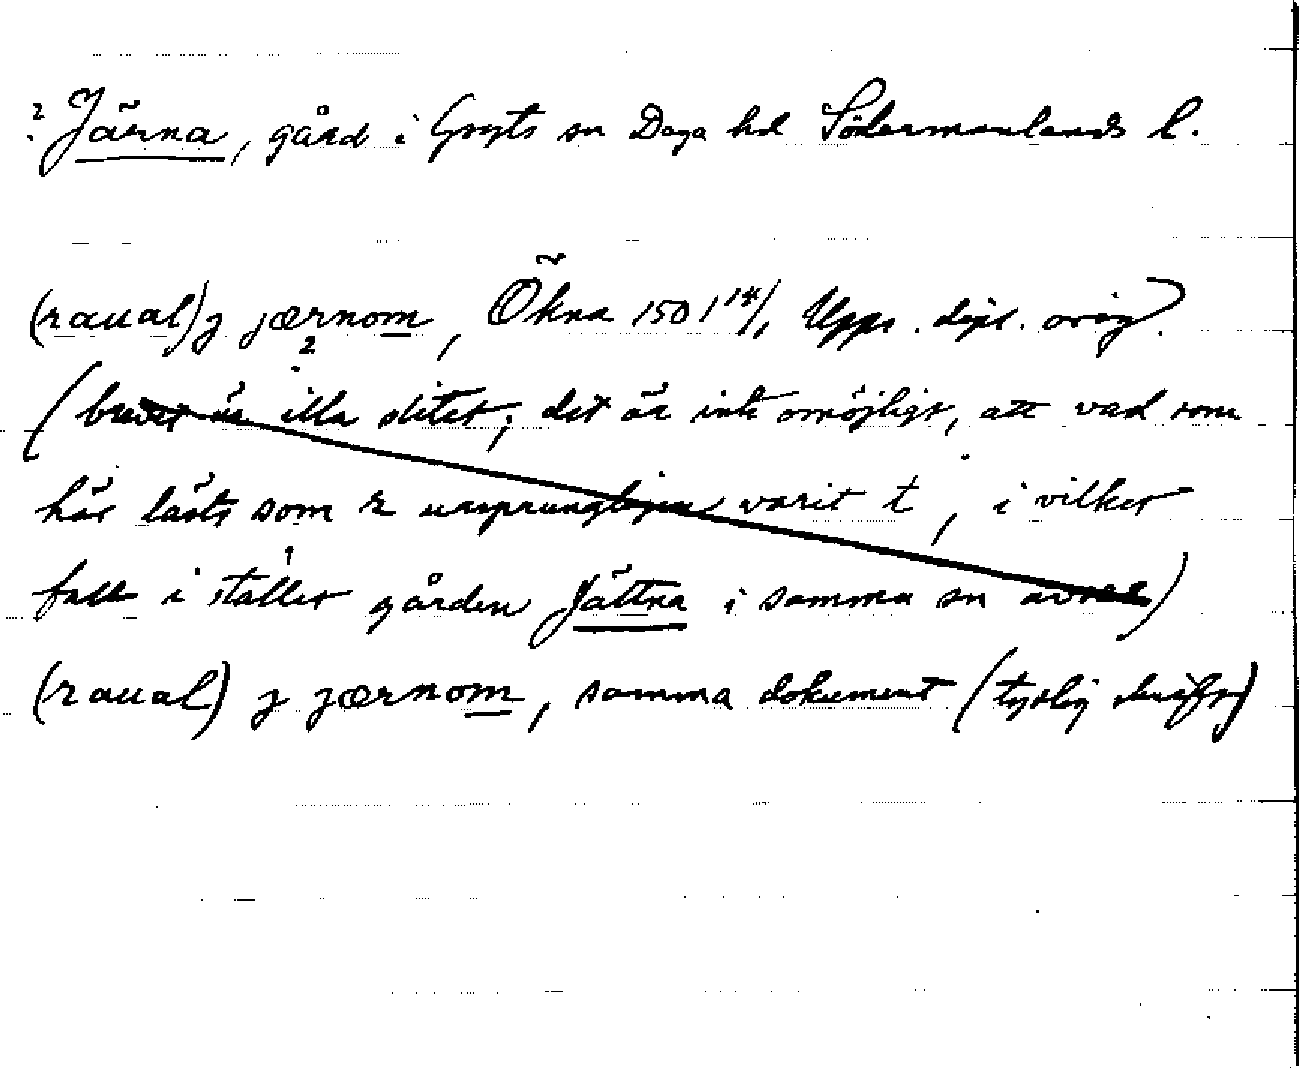 ? Järna, gård i Gryts sn Daga hd Södermanlands l.
(raual) j jærnom, Ökna 1501 14/1 Upps. dipl. orig.
(brevet är illa slitet; det är inte omöjligt, att vad som
här lästs som r ursprungligen varit t, i vilket
fall i stället gården Jättna i samma sn avses)
(raual) j jærnom, samma dokument (tydlig skrift)